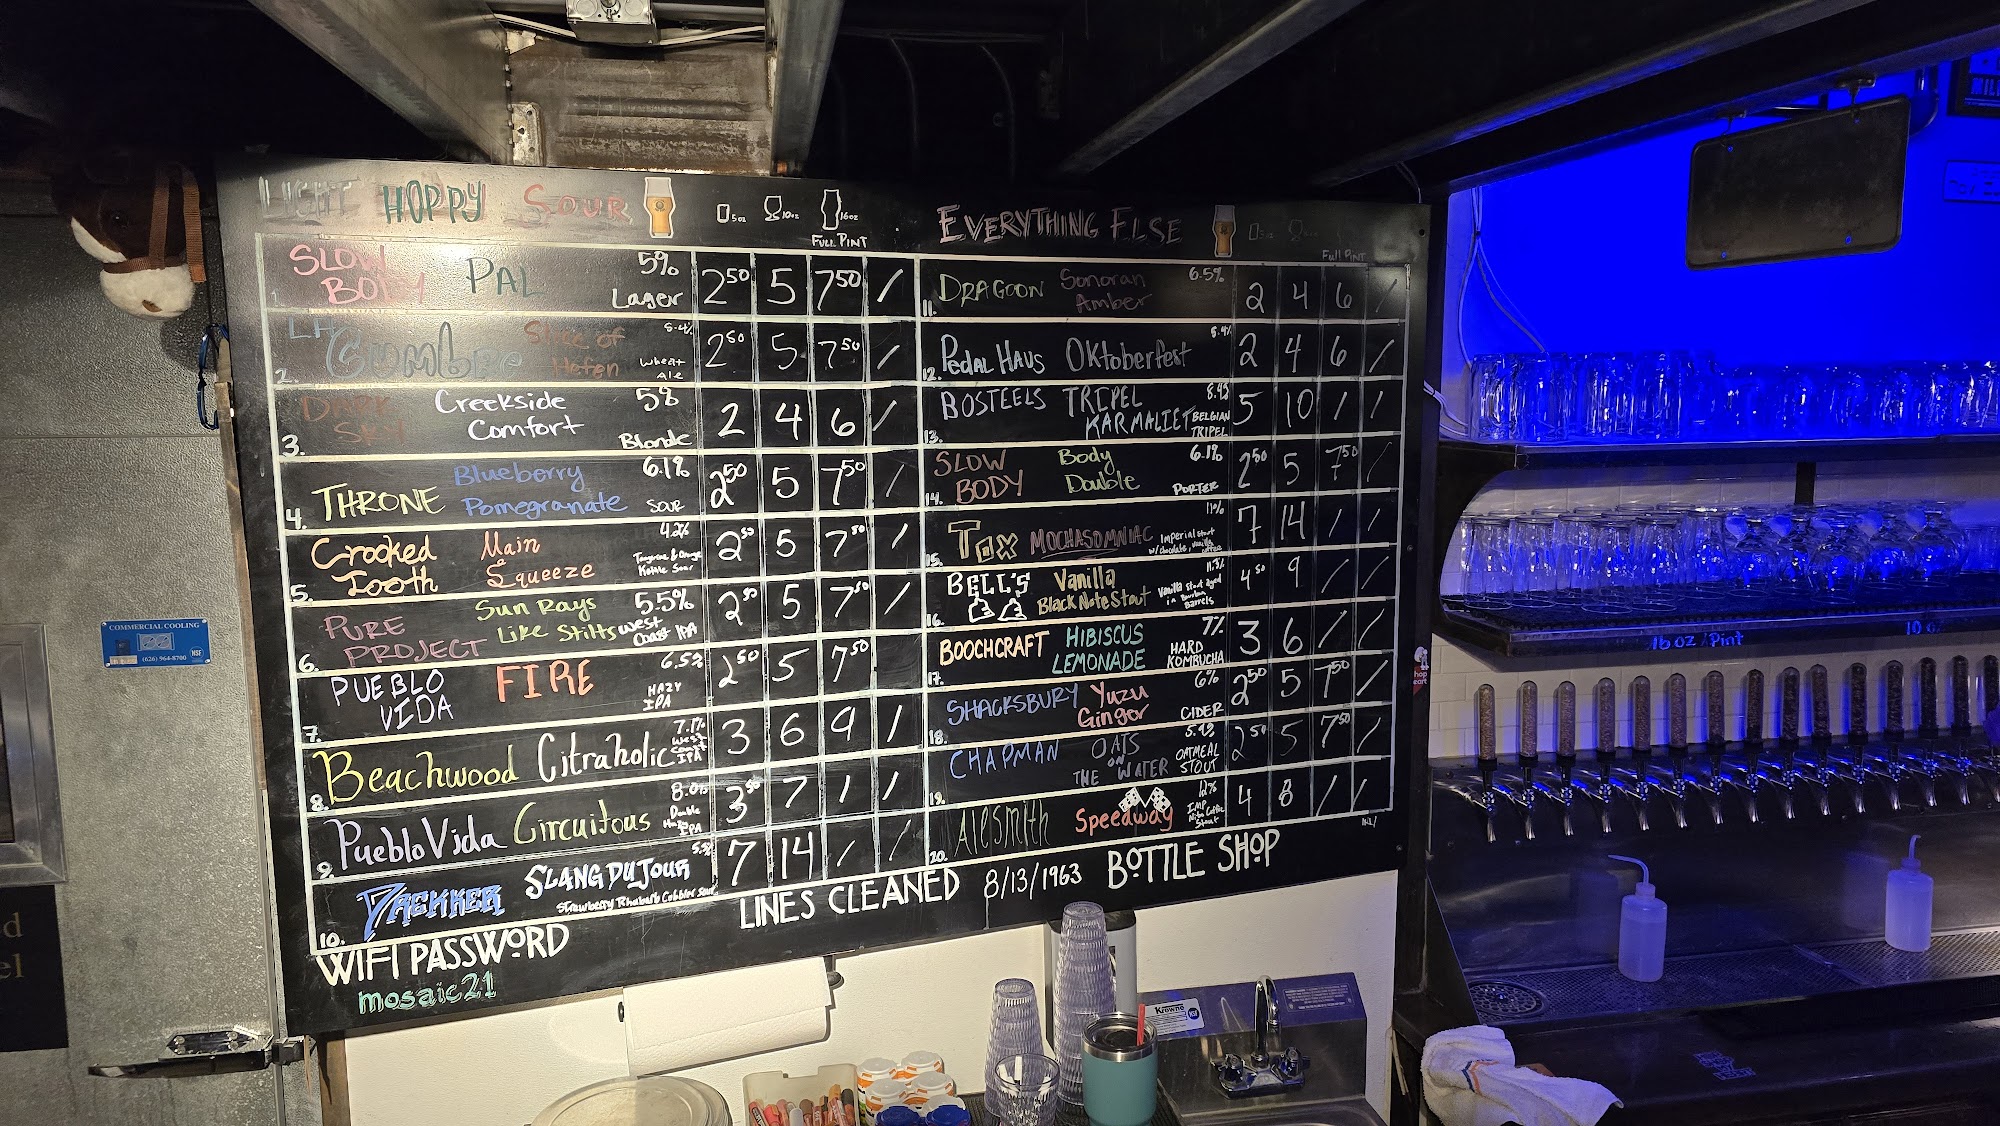 LIGHT HOPPY SOUR 5oz 10oz 16oz
FULL PINT
1. SLOW BODY PAL 5% Lager 2⁵⁰ 5 7⁵⁰ /
2. Slice of Hefen 5.4% Wheat Ale 2⁵⁰ 5 7⁵⁰ /
3. DARK SKY Creekside Comfort 58 Blonde 2 4 6 /
4. THRONE Blueberry Pomegranate 6.1% SOUR 2⁵⁰ 5 7⁵⁰ /
5. Crooked Tooth Main Squeeze 4.2% Kettle Sour 2⁵⁰ 5 7⁵⁰ /
6. PURE PROJECT Sun Rays Like Stilts 5.5% West Coast IPA 2⁵⁰ 5 7⁵⁰ /
7. PUEBLO VIDA FIRE 6.5% HAZY IPA 2⁵⁰ 5 7⁵⁰
8. Beachwood Citraholic 7.1% West Coast IPA 3 6 9 /
9. Pueblo Vida Circuitous 8.0% Double Hazy IPA 3⁵⁰ 7 / /
10. DREKKER SLANG DU JOUR 5.5% Strawberry Rhubarb Cobbler Sour 7 14 / /
EVERYTHING ELSE
Full PINT
11. DRAGOON Sonoran Amber 6.5% 2 4 6 /
12. Pedal Haus Oktoberfest 5.4% 2 4 6 /
13. BOSTEELS TRIPEL KARMALIET 8.4% BELGIAN TRIPEL 5 10 / /
14. SLOW BODY Body Double 6.1% PORTER 2⁵⁰ 5 7⁵⁰ /
15. Tox MOCHASOMNIAC 11% Imperial Stout w/ chocolate, vanilla, coffee 7 14 / /
16. BELL'S Vanilla Black Note Stout 11.3% Vanilla Stout aged in Bourbon Barrels 4⁵⁰ 9 / /
17. BOOCHCRAFT HIBISCUS LEMONADE 7% HARD KOMBUCHA 3 6 / /
18. SHACKSBURY Yuzu Ginger 6% CIDER 2⁵⁰ 5 7⁵⁰ /
19. CHAPMAN OATS ON THE WATER 5.4% OATMEAL STOUT 2⁵⁰ 5 7⁵⁰ /
20. AleSmith Speedway 12% IMP Coffee Stout 4 8 / /
LINES CLEANED 8/13/1963 BOTTLE SHOP
WIFI PASSWORD
mosaic21
COMMERCIAL COOLING
(626) 964-8700
NSF
16 oz / Pint
Krowne